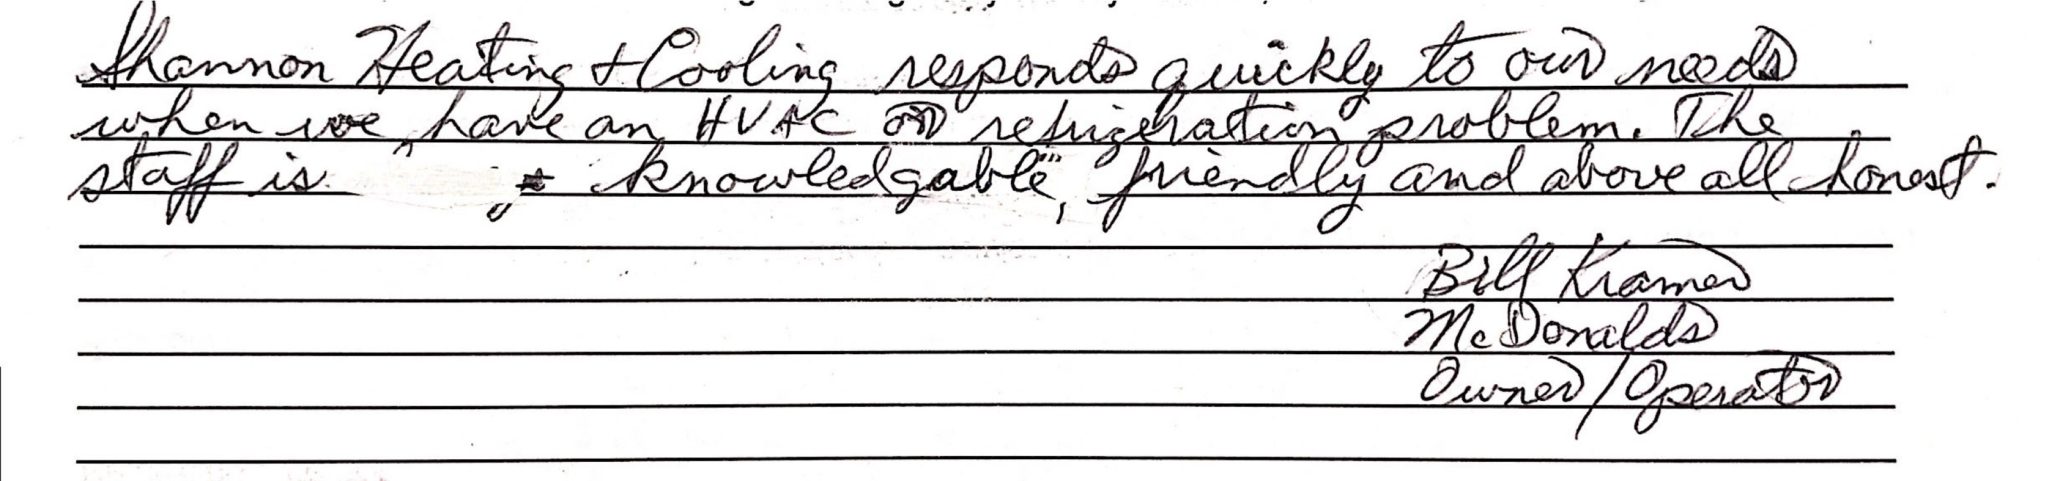 Shannon Heating + Cooling responds quickly to our needs
when we have an HVAC or refrigeration problem. The
staff is knowledgable, friendly and above all honest.
Bill Kramer
McDonalds
Owner/Operator